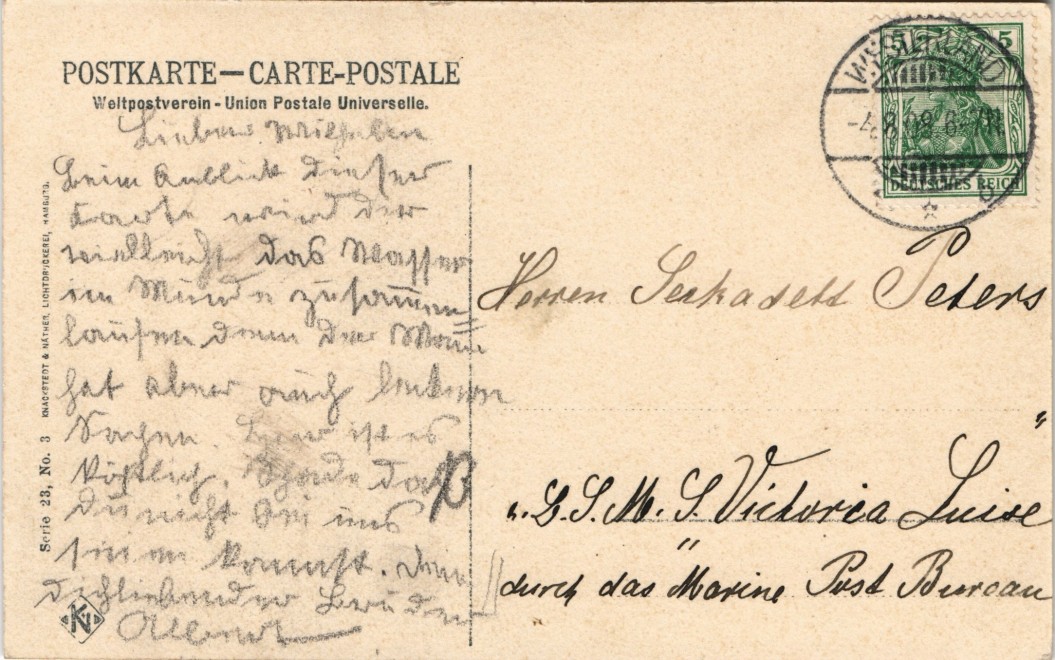 POSTKARTE — CARTE-POSTALE
Weltpostverein - Union Postale Universelle.
Lieber Wilhelm
Beim Anblick dieser
Karte wird dir
vielleicht das Wasser
im Munde zusammen
laufen denn Der Mann
hat aber auch leckere
Sachen. Hier ist es
köstlich. Schade daß
du nicht bei uns
sein kannst. Dein
dichliebender Bruder
Albert
Serie 23, No. 3 KNACKSTEDT & NÄTHER, LICHTDRUCKEREI, HAMBURG.
WESTERLAND
8.08.6-7N.
5 5
DEUTSCHES REICH
Herren Seekadett Peters
„S.M.S. Victoria Luise"
durch das Marine Post Bureau
KN